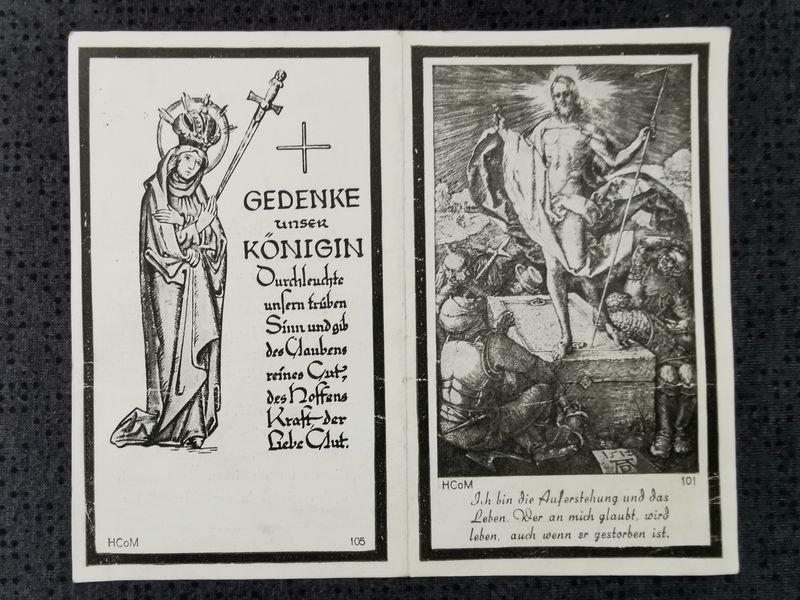 GEDENKE
unser
KÖNIGIN
Durchleuchte
unsern trüben
Sinn und gib
des Glaubens
reines Gut,
des Hoffens
Kraft, der
Liebe Glut.
HCoM 105
1512
AD
HCoM 101
Ich bin die Auferstehung und das
Leben. Wer an mich glaubt, wird
leben, auch wenn er gestorben ist.